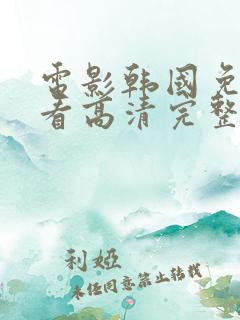 雷影韩国免
看高清完整
利娅
未经同意禁止转载